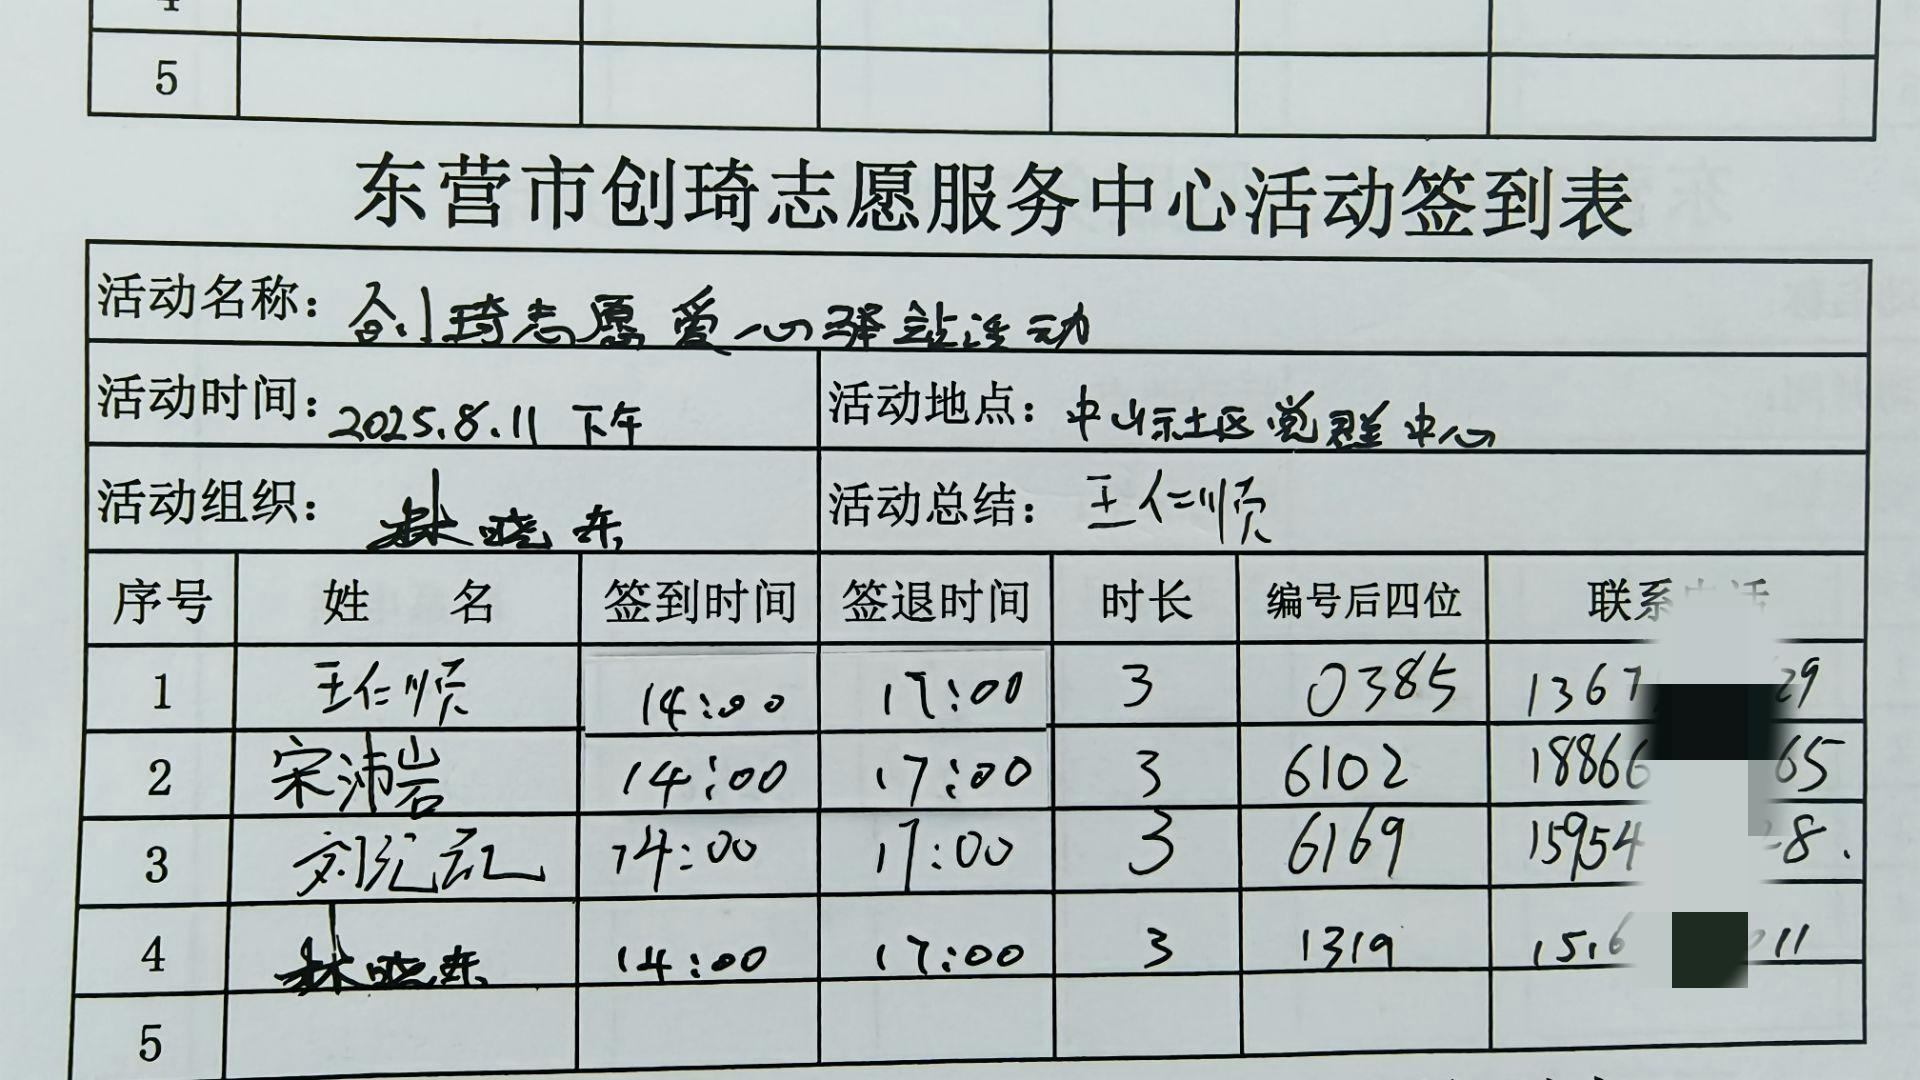 5
东营市创琦志愿服务中心活动签到表
活动名称：创琦志愿爱心驿站活动
活动时间：2025.8.11 下午 活动地点：中山社区党群中心
活动组织：林晓东 活动总结：王仁顺
序号 姓 名 签到时间 签退时间 时长 编号后四位 联系
1 王仁顺 14:00 17:00 3 0385 1367 29
2 宋沛岩 14:00 17:00 3 6102 18866 65
3 刘 14:00 17:00 3 6169 15954 28.
4 林晓东 14:00 17:00 3 1319 1516 11
5